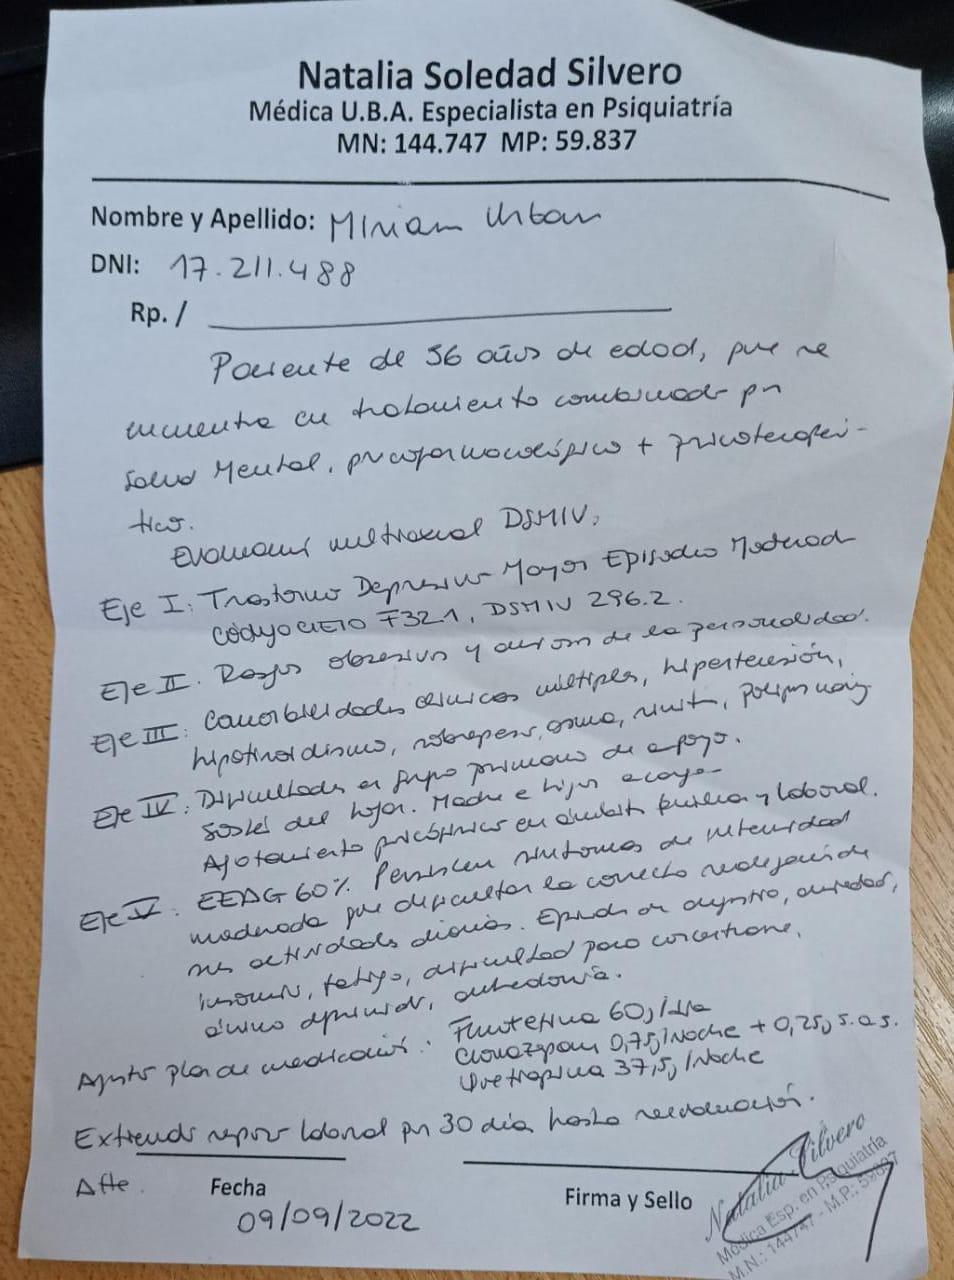 Natalia Soledad Silvero
Médica U.B.A. Especialista en Psiquiatría
MN: 144.747 MP: 59.837
Nombre y Apellido: Miriam Urban
DNI: 17.211.488
Rp. /
Paciente de 56 años de edad, que se
encuentra en tratamiento combinado por
Salud Mental, psicofarmacológico + psicoterapéu-
tico.
Evaluación multiaxial DSMIV:
Eje I: Trastorno Depresivo Mayor Episodio Moderado
Código CIE10 F32.1, DSMIV 296.2.
Eje II: Rasgos obsesivos y de la personalidad.
Eje III: Comorbilidades clínicas múltiples, hipertensión,
hipotiroidismo, sobrepeso, asma, rinitis,
Eje IV: Dificultades en grupo primario de apoyo.
Sostén del hogar. Madre e hijos a cargo.
Agotamiento psicofísico en ámbito familiar y laboral.
Eje V: EEAG 60%. Persisten síntomas de intensidad
moderada que dificultan la correcta realización de
sus actividades diarias. Episodios de angustia, ansiedad,
insomnio, fatiga, dificultad para concentrarse,
ánimo deprimido, anhedonia.
Ajusto plan de medicación: 60 /día
Clonazepam 0,75 /Noche + 0,25 s.o.s.
37,5 /Noche
Extiendo reposo laboral por 30 días hasta reevaluación.
Atte.
Fecha
09/09/2022
Firma y Sello
Natalia Silvero
Médica Esp. en Psiquiatría
M.N.: 144747 - M.P.: 59837